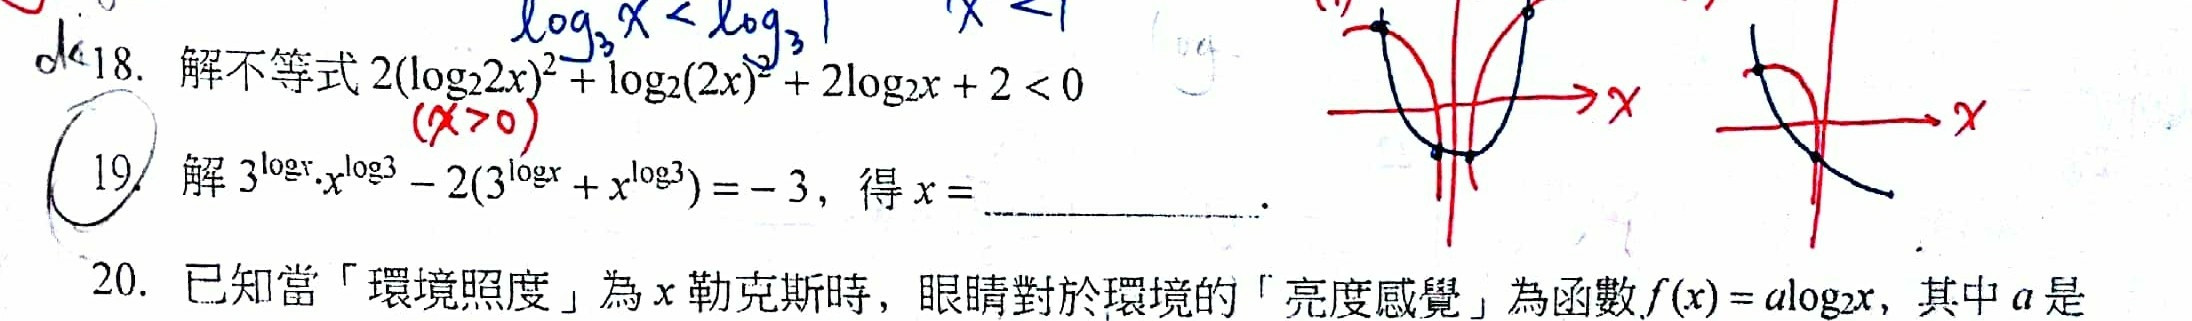 log₃x < log₃1 x < 1
18. 解不等式 2(log₂2x)² + log₂(2x)² + 2log₂x + 2 < 0
(x>0)
19. 解 3^{logx}·x^{log3} − 2(3^{logx} + x^{log3}) = − 3，得 x = ________.
x
x
20. 已知當「環境照度」為 x 勒克斯時，眼睛對於環境的「亮度感覺」為函數 f(x) = alog₂x，其中 a 是